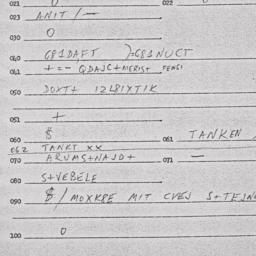 021 0 022 0
023 ANIT/—
030 0
040 G81DAFT )=G81NUCT
041 + = - QDAJC+MERIST FENSI
050 DOXT+ IZLRIXTIK
051 +
060 $ 061 TANKEN /
062 TANKT XX
070 ARUMS+NAJD+ 071 —
080 S+VEBELE
090 $/MOXKRE MIT CVEJ S+TEJN
100 0